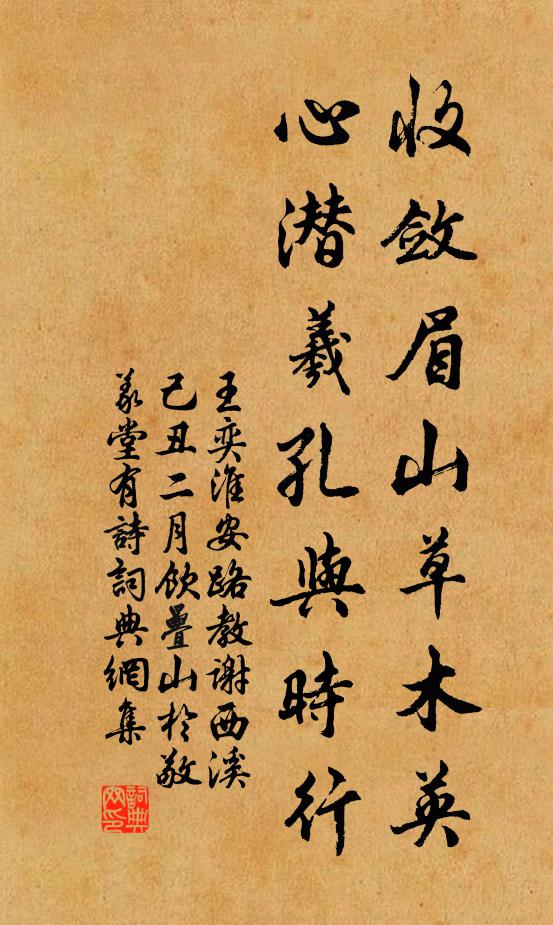 收斂眉山草木英
心潜羲孔與時行
王奕淮安路教谢西溪
己丑二月飲疊山於敬
义堂有詩詞典網集
詞典網印